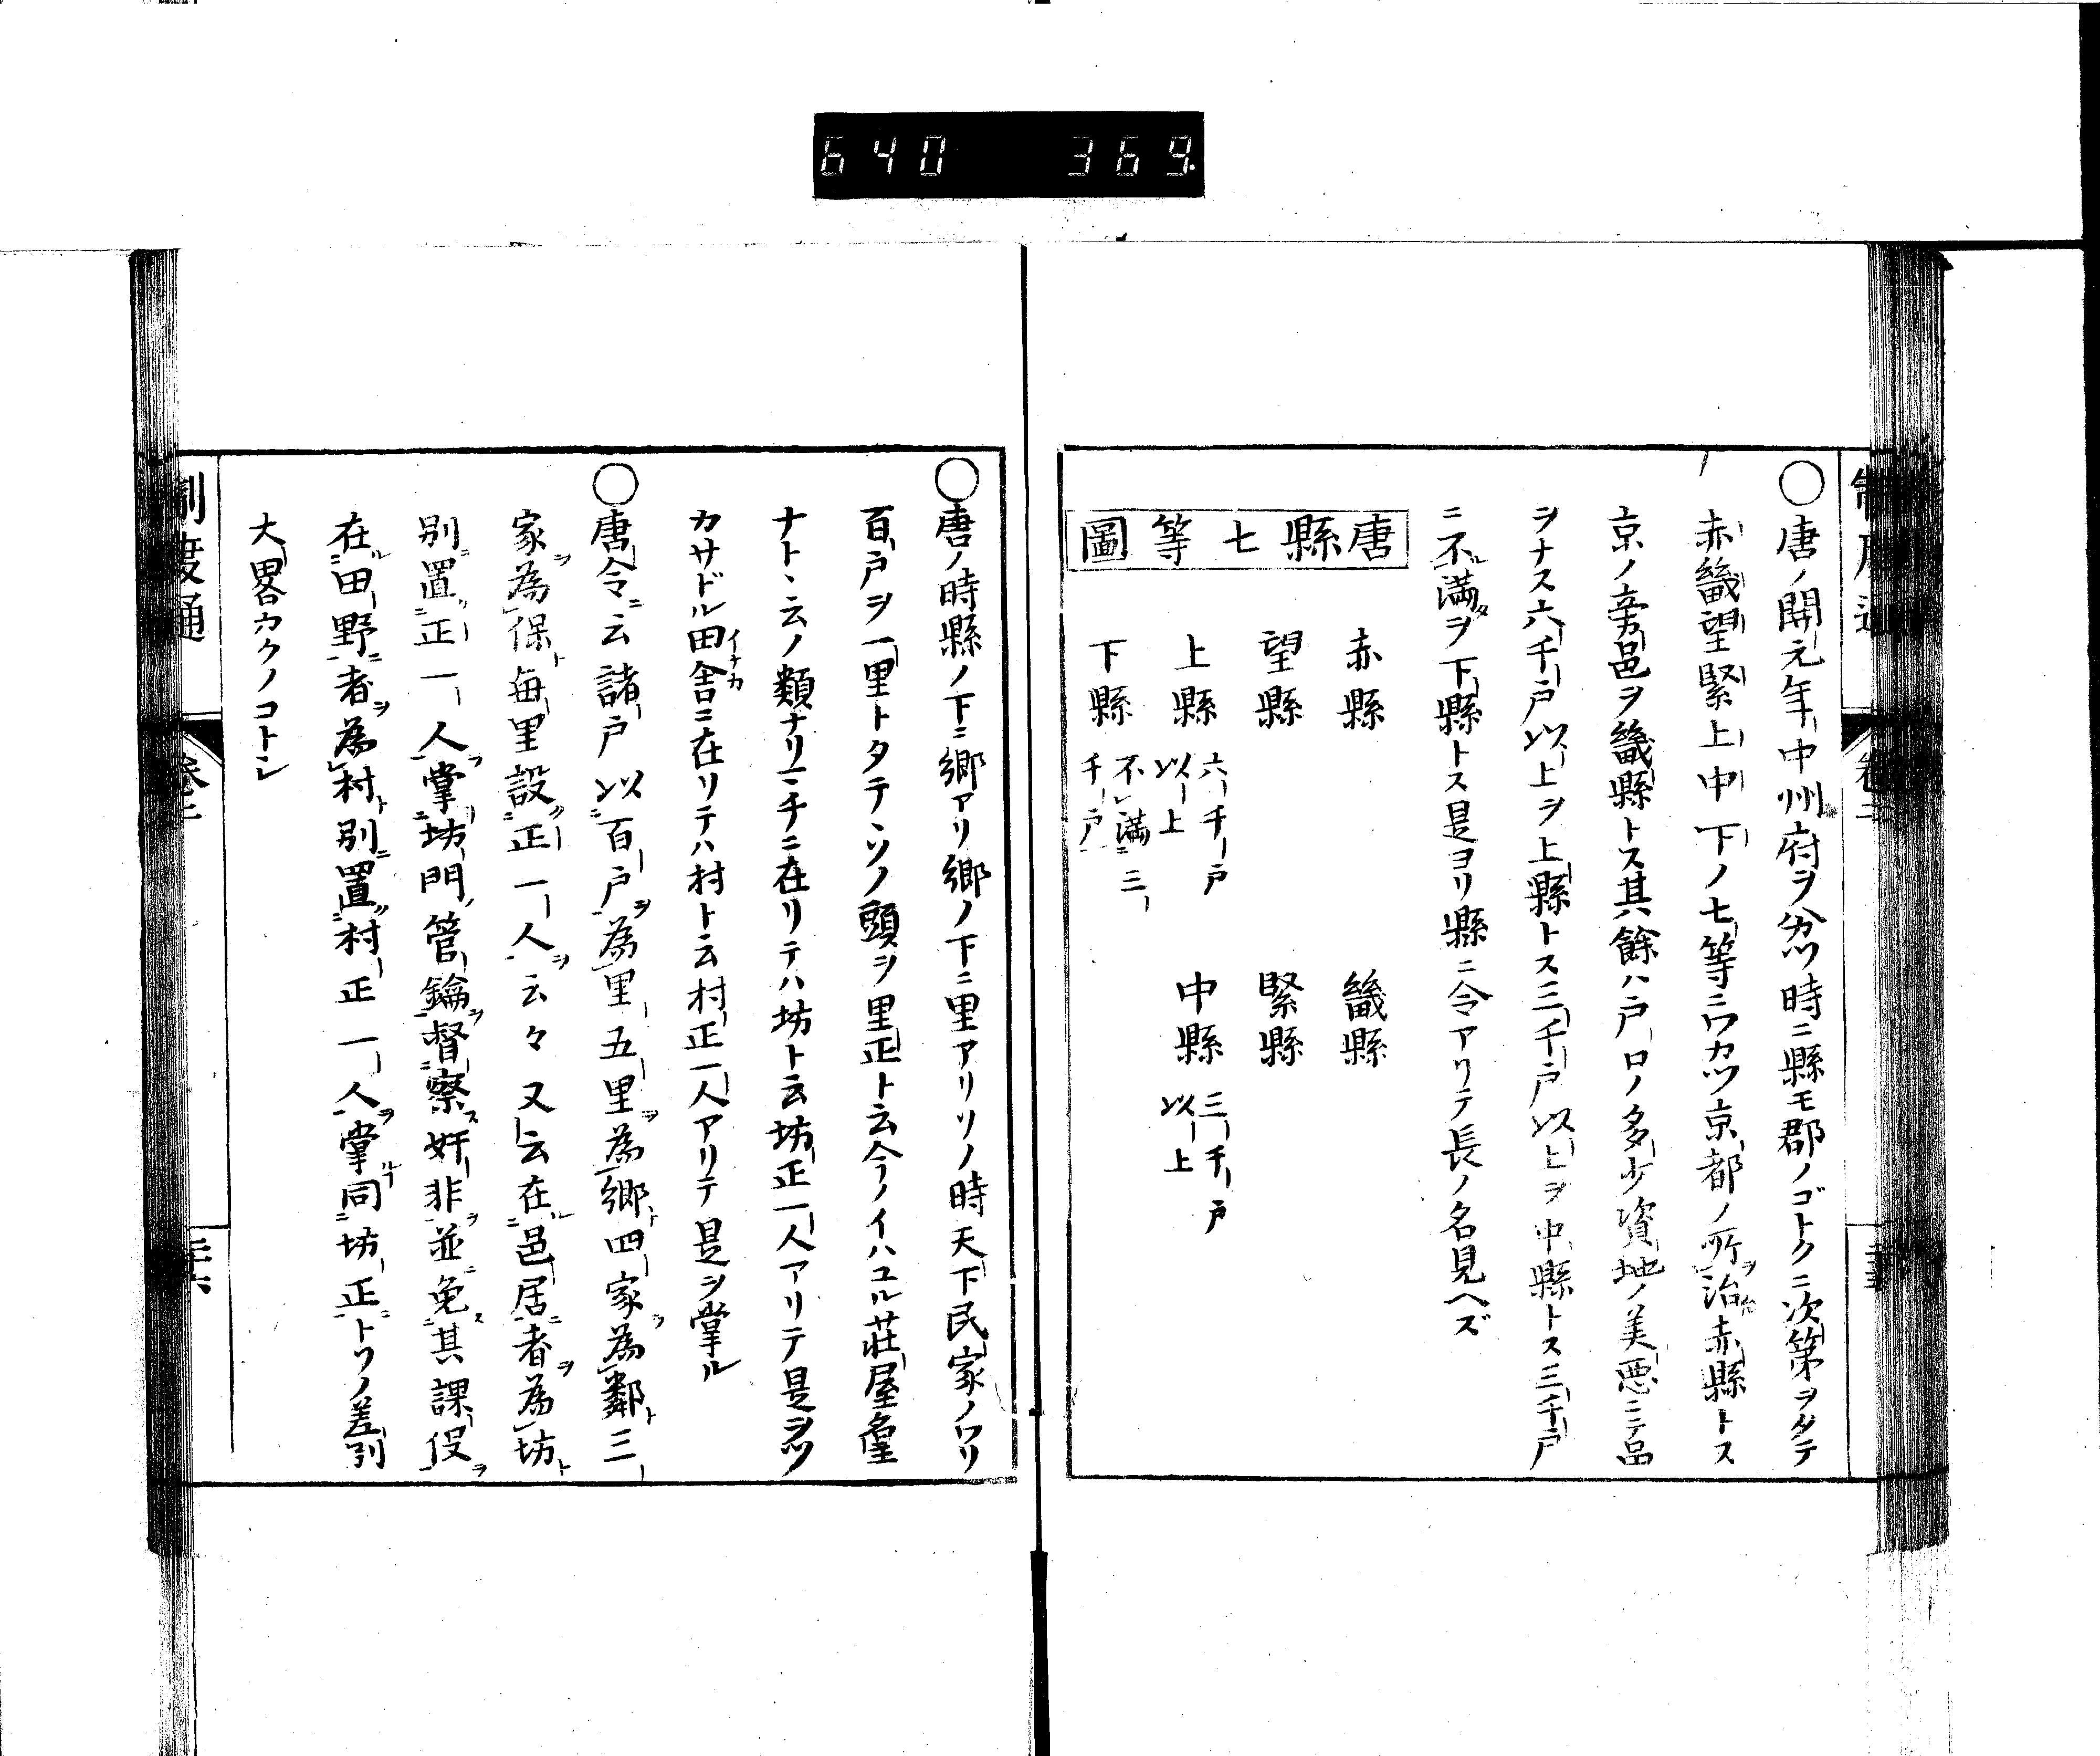 640 369
○唐ノ開元年中州府ヲ分ツ時ニ縣モ郡ノゴトクニ次第ヲタテ
赤畿望緊上中下ノ七等ニワカツ京都ノ所治赤縣トス
京ノ旁邑ヲ畿縣トス其餘ハ戸口ノ多少資地ノ美悪ニテ品
ヲナス六千戸以上ヲ上縣トス三千戸以上ヲ中縣トス三千戸
ニ不満ヲ下縣トス是ヨリ縣ニ令アリテ長ノ名見ヘズ
唐縣七等圖
赤縣 畿縣
望縣 緊縣
上縣 六千戸以上 中縣 三千戸以上
下縣 不レ満二三千戸一
○唐ノ時縣ノ下ニ郷アリ郷ノ下ニ里アリソノ時天下民家ノワリ
百戸ヲ一里トタテソノ頭ヲ里正ト云今ノイハユル荘屋
ナトヽ云ノ類ナリ マチニ在リテハ坊ト云坊正一人アリテ是ヲツ
カサドル田舎ニ在リテハ村ト云村正一人アリテ是ヲ掌ル
イナカ
○唐令ニ云諸戸以百戸為里五里為郷四家為鄰三
家為保毎里設正一人云々又云在邑居者為坊
別置正一人掌坊門管鑰督察奸非並免其課役
在田野者為村別置村正一人掌同坊正トソノ差別
大畧カクノコトシ
制度通 巻二